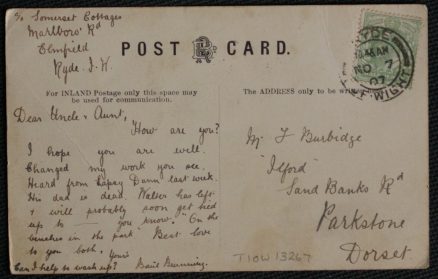 c/o Somerset Cottages
Marlboro' Rd
Elmfield
Ryde. I. W.
POST CARD.
For INLAND Postage only this space may
be used for communication.
The ADDRESS only to be
Dear Uncle & Aunt,
How are you?
I hope you are well.
Changed my work you see.
Heard from Dann last week.
His dad is dead. Walter has left
& will probably soon get tied
up to you know. "On the
benches in the park" Best love
to you both. Yours
Can I help to wash up?
RYDE
10.45 AM
NO 7
07
OF WIGHT
Mr F Burbidge
"Ilford"
Sand Banks Rd
Parkstone
Dorset
TIOW 13267